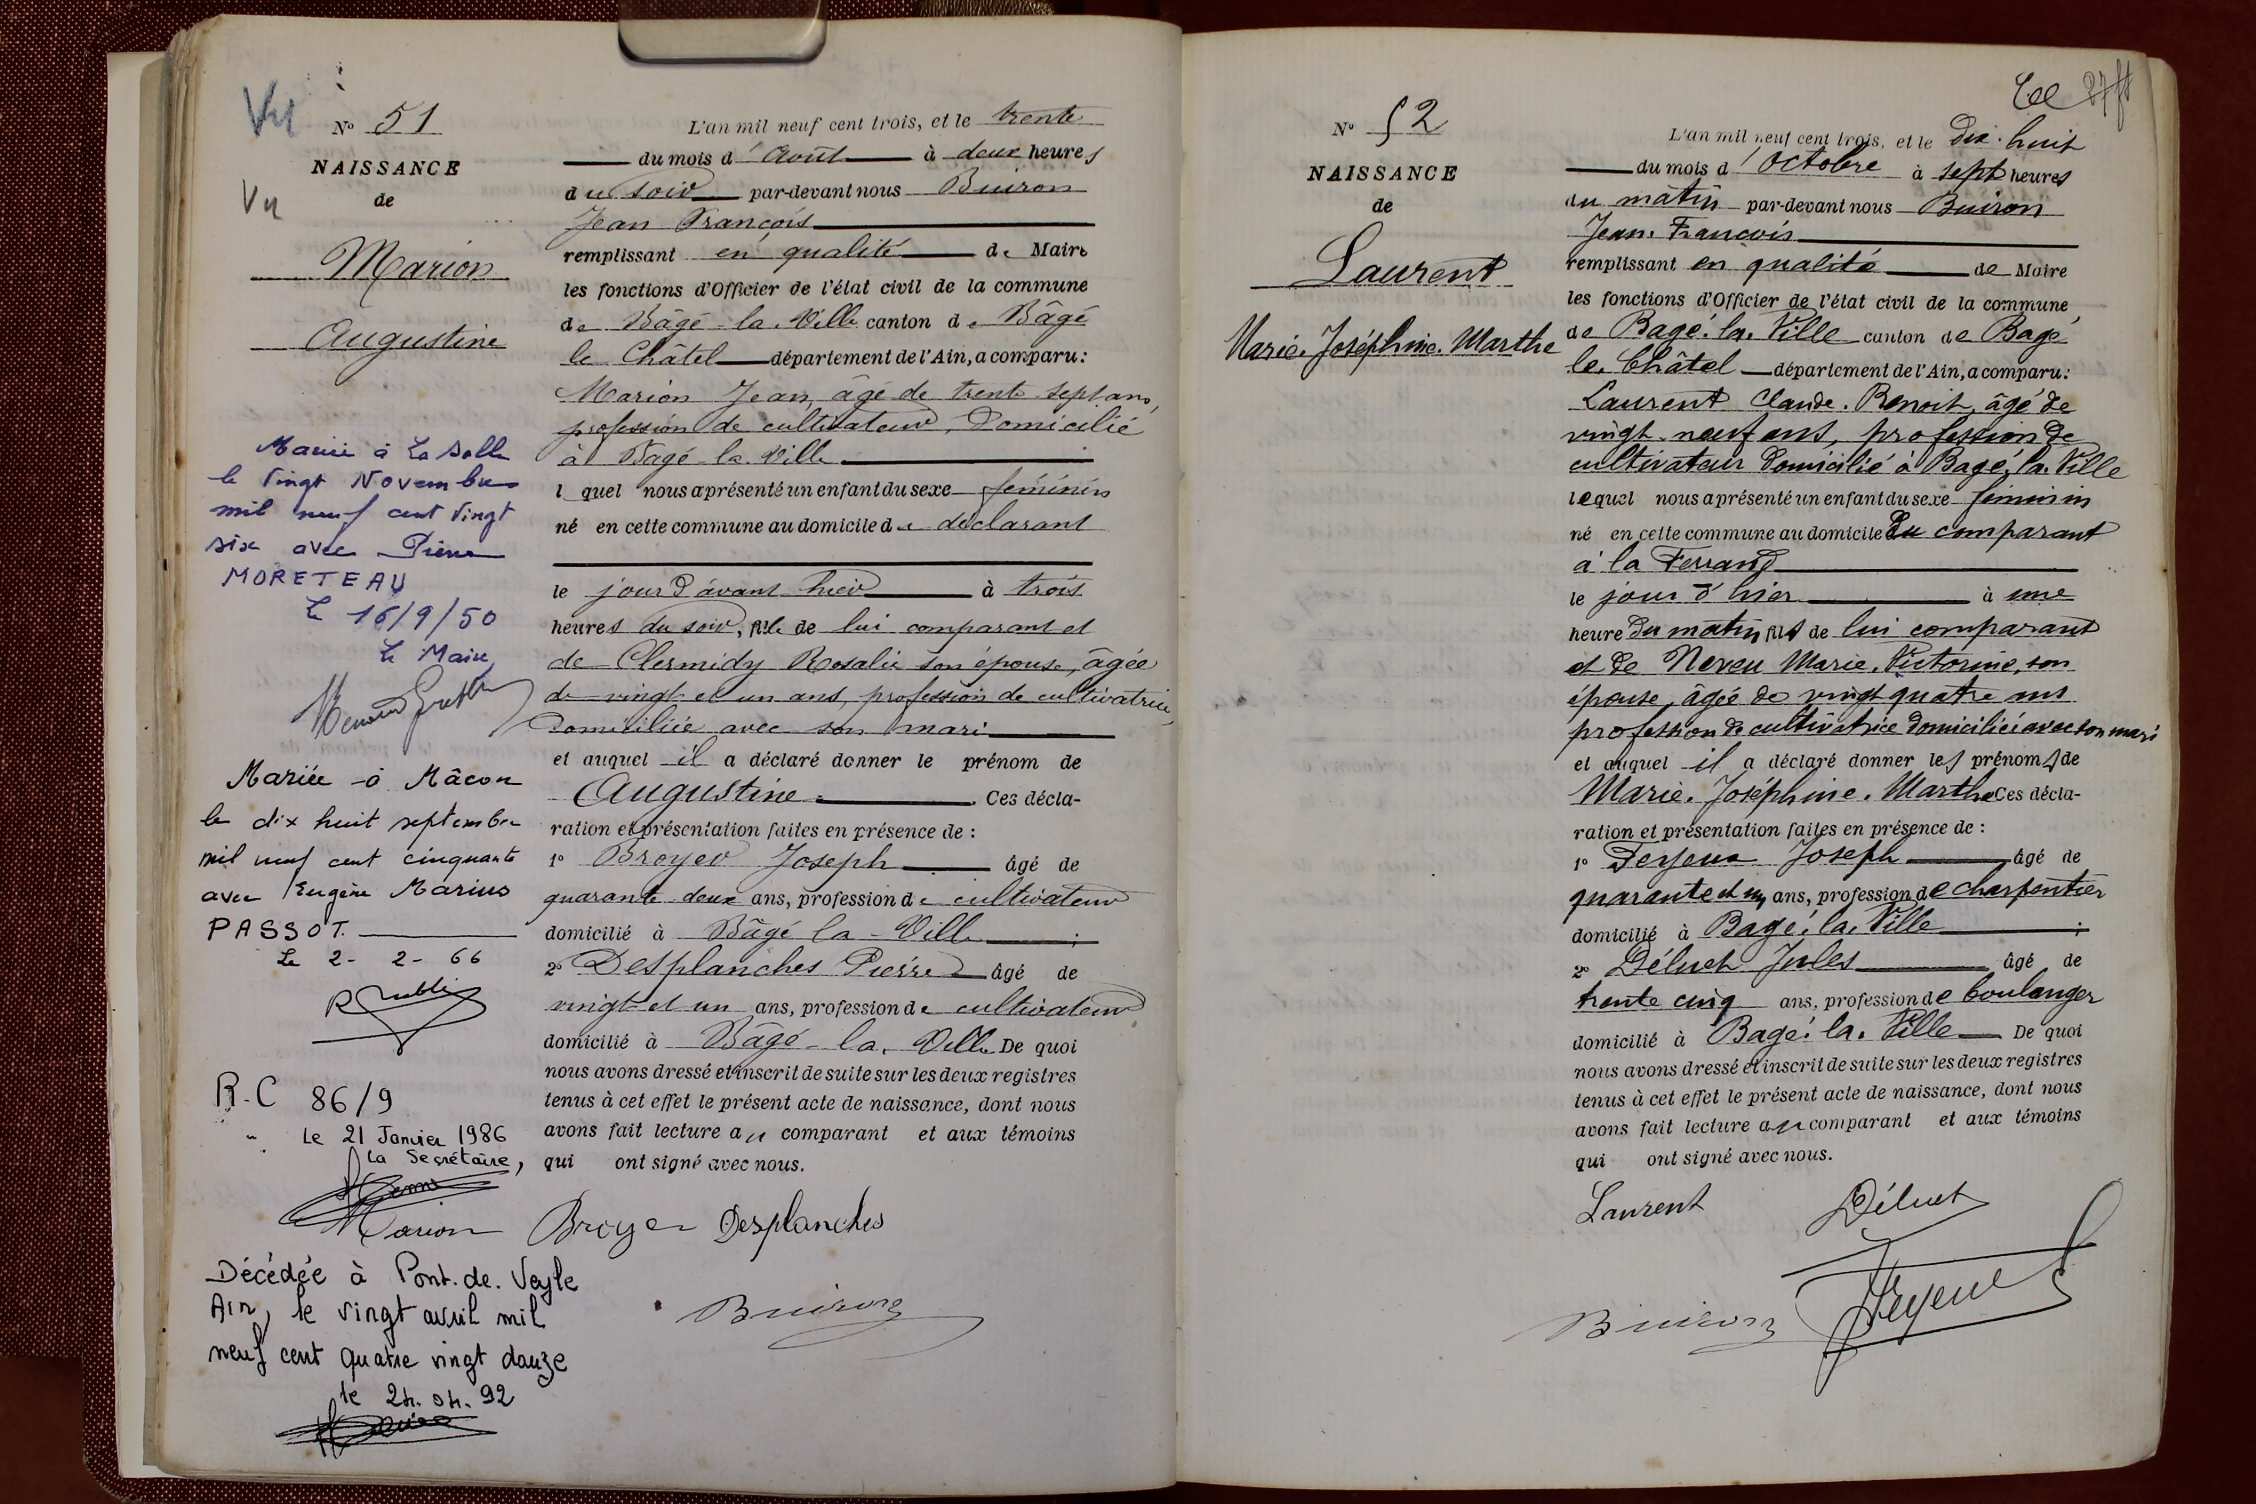 Vu
N° 51
NAISSANCE
Vu
de
Marion
Augustine
Mariée à La Salle
le vingt Novembre
mil neuf cent vingt
six avec Pierre
MORETEAU
Le 16/9/50
Le Maire
Mariée à Mâcon
le dix huit septembre
mil neuf cent cinquante
avec Eugène Marius
PASSOT.
Le 2- 2- 66
R.C 86/9
Le 21 Janvier 1986
La Secrétaire,
Décédée à Pont.de.Veyle
Ain, le vingt avril mil
neuf cent quatre vingt douze
le 24.04.92
L'an mil neuf cent trois, et le trente
du mois d'Août à deux heures
du soir par-devant nous Buiron
Jean François
remplissant en qualité de Maire
les fonctions d'Officier de l'état civil de la commune
de Bâgé-la-Ville canton de Bâgé
le Châtel département de l'Ain, a comparu:
Marion Jean, âgé de trente sept ans,
profession de cultivateur, domicilié
à Bagé-la-Ville
l quel nous a présenté un enfant du sexe féminin
né en cette commune au domicile de déclarant
le jour d'avant hier à trois
heures du soir, fille de lui comparant et
de Clermidy Rosalie son épouse, âgée
de vingt et un ans, profession de cultivatrice,
domiciliée avec son mari
et auquel il a déclaré donner le prénom de
Augustine. Ces décla-
ration et présentation faites en présence de :
1° Broyer Joseph âgé de
quarante deux ans, profession de cultivateur
domicilié à Bâgé la-Ville ;
2° Desplanches Pierre âgé de
vingt et un ans, profession de cultivateur
domicilié à Bâgé-la-Ville De quoi
nous avons dressé et inscrit de suite sur les deux registres
tenus à cet effet le présent acte de naissance, dont nous
avons fait lecture au comparant et aux témoins
qui ont signé avec nous.
Marion Broyer Desplanches
Buiron
N° 52
NAISSANCE
de
Laurent
Marie. Joséphine. Marthe
L'an mil neuf cent trois, et le Dix-huit
du mois d'Octobre à sept heures
du matin par-devant nous Buiron
Jean. François
remplissant en qualité de Maire
les fonctions d'Officier de l'état civil de la commune
de Bagé.la.Ville canton de Bagé
le. Châtel département de l'Ain, a comparu:
Laurent Claude. Benoit, âgé de
vingt-neuf ans, profession de
cultivateur domicilié à Bagé.la.Ville
lequel nous a présenté un enfant du sexe feminin
né en cette commune au domicile du comparant
à la Ferrand
le jour d'hier à une
heure du matin fils de lui comparant
et de Neveu Marie. Victorine, son
épouse, âgée de vingt quatre ans
profession de cultivatrice domiciliée avec son mari
et auquel il a déclaré donner les prénoms de
Marie. Joséphine. Marthe Ces décla-
ration et présentation faites en présence de :
1° Joseph âgé de
quarante et un ans, profession de charpentier
domicilié à Bagé.la.Ville ;
2° Déluet Jules âgé de
trente cinq ans, profession de boulanger
domicilié à Bagé.la.Ville De quoi
nous avons dressé et inscrit de suite sur les deux registres
tenus à cet effet le présent acte de naissance, dont nous
avons fait lecture au comparant et aux témoins
qui ont signé avec nous.
Laurent Déluet
Buiron